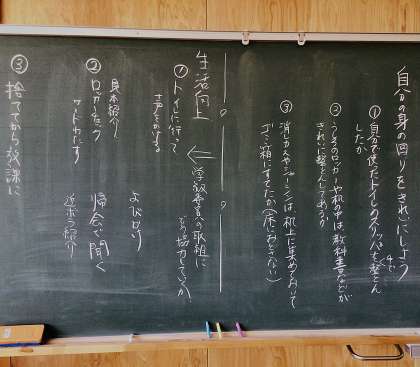 自分の身の回りをきれいにしよう
① 自分で使ったトイレのスリッパを整とん
したか
② うしろのロッカーや机の中は教科書などが
きれいに整とんしてあるか
③ 消しカスやシャーシンは机上に集めておいて
ゴミ箱にすてたか(床におとさない)
生活向上
← 学級委員の取組に
どう協力していくか
① トイレに行って
声をかける
② ロッカーチェック
カードわたす
見本紹介
よびかけ
帰会で聞く
近
紹介
③ 捨ててから放課に